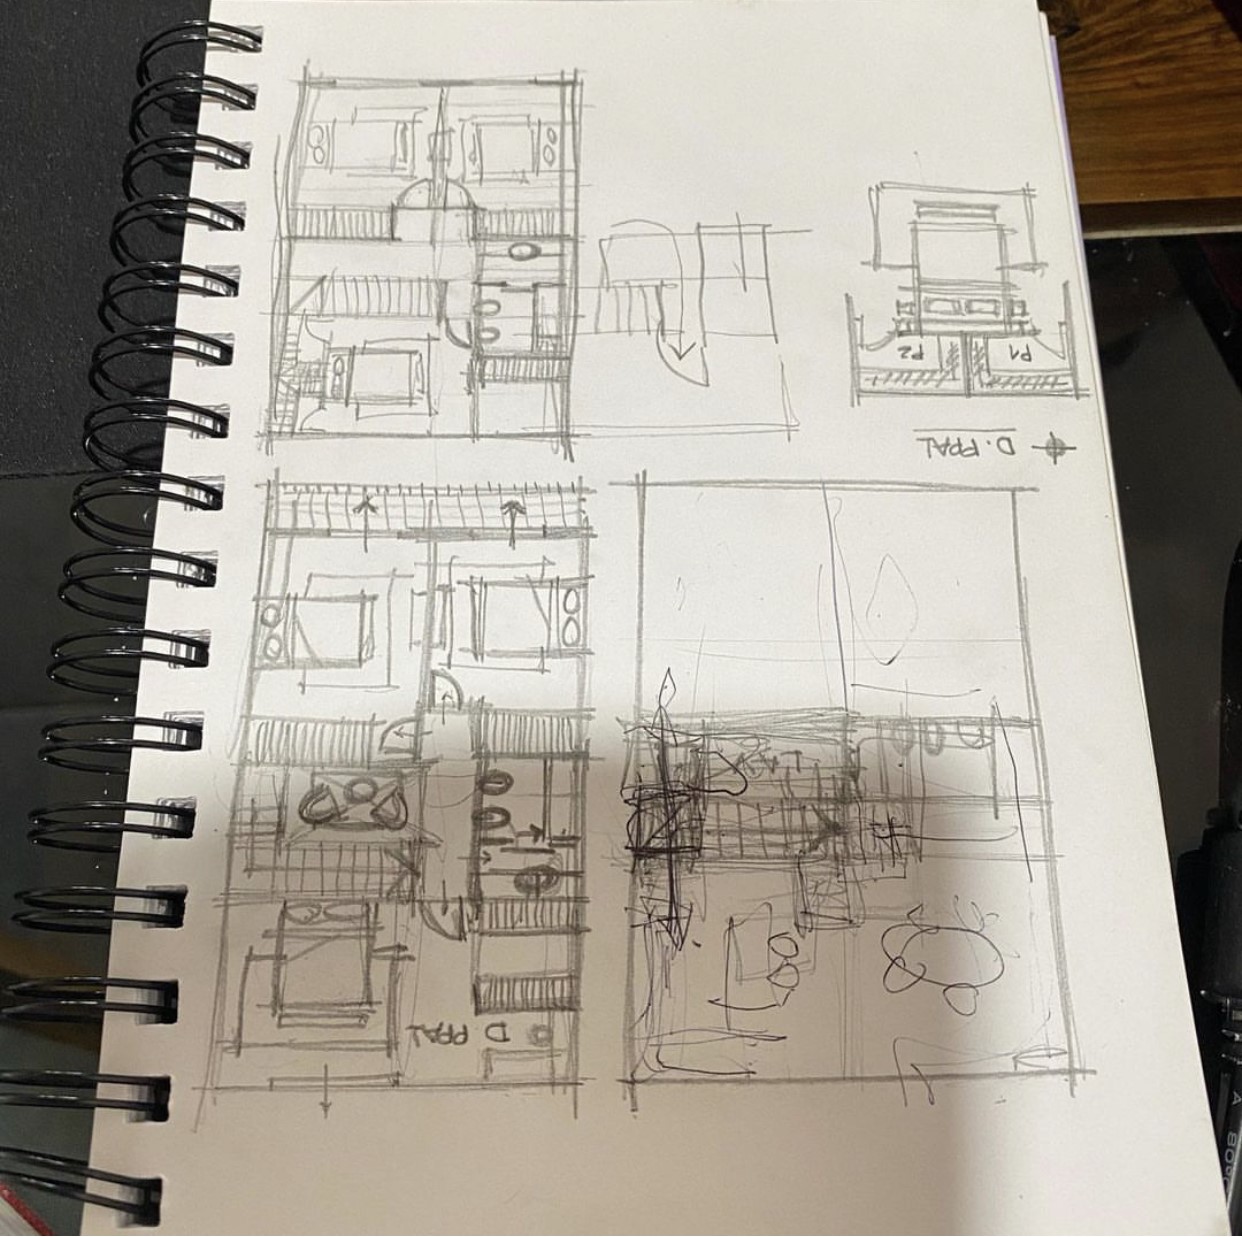 P2
P1
D. PPAL
D PPAL
A
80